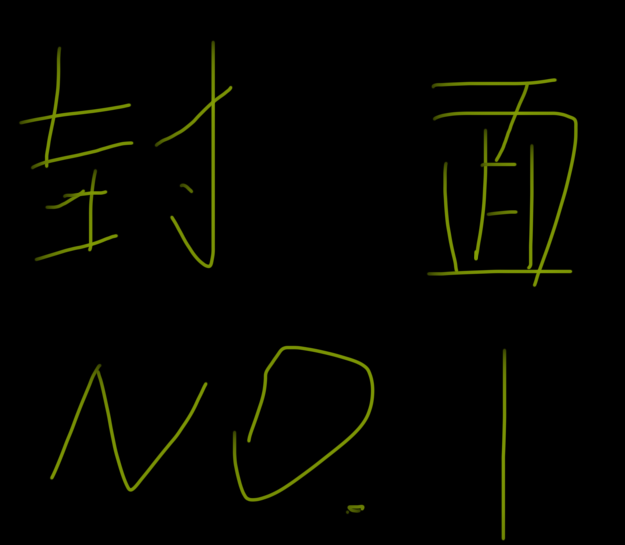 封面
NO.1